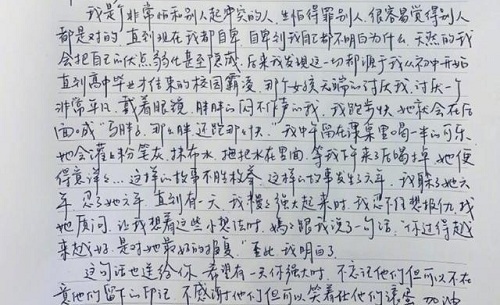 我是个非常怕和别人起冲突的人,生怕得罪别人,很容易觉得别人
都是对的,直到现在我都自卑,自卑到我自己都不明白为什么,天然的我
会把自己的优点弱化甚至隐藏,后来我发现这一切都源于我从初中开始
直到高中毕业才结束的校园霸凌,那个女孩无端的讨厌我,讨厌一个
非常平凡,戴着眼镜,胖胖的闷不作声的我,我跑步快她就会在后
面喊“马胖子,那么胖还跑那么快。”我中午留在课桌里喝一半的可乐
她会灌上粉笔灰,抹布水,拖把水在里面,等我下午来了后喝掉,她便
得意洋洋…这样的故事不胜枚举,这样的故事发生了六年,我躲了她六
年,忍了她六年,直到有一天,我慢慢强大起来时,我忍不住想报仇,找
她质问,让我想着这些小想法时,妈妈跟我说了一句话,“你过得越
来越好,是对她最好的报复”至此,我明白了
这句话也送给你,希望有一天你强大时,不忘记他们但可以不在
意他们留下的印记,不感谢他们但可以笑着让他们滚